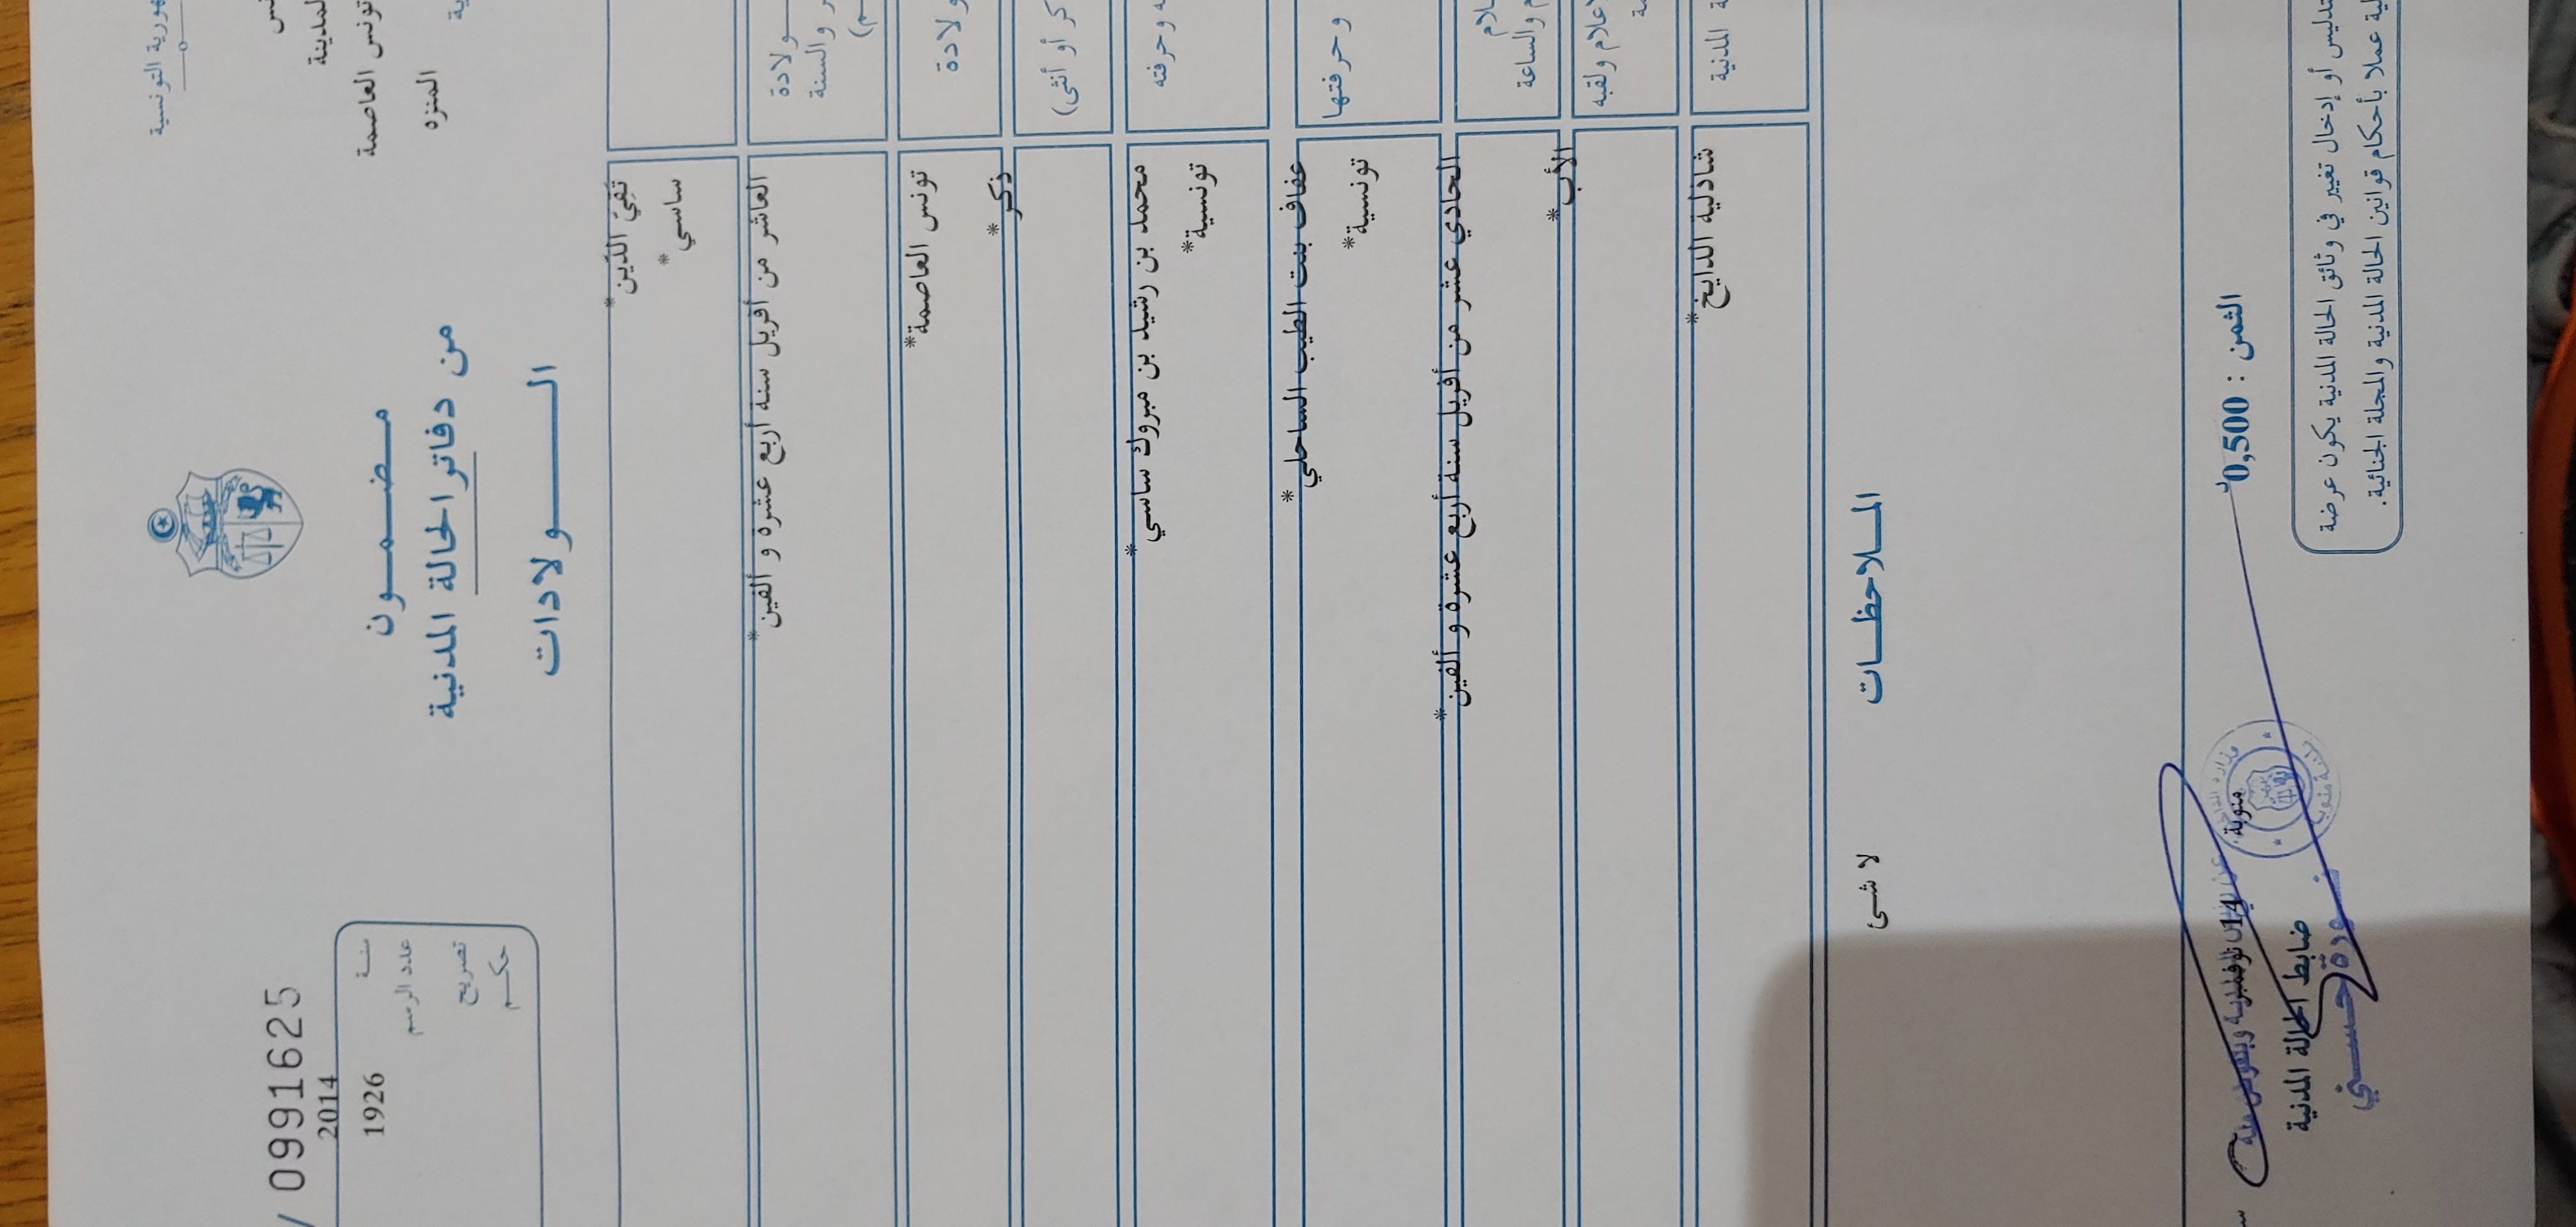 الجمهورية التونسية
تونس
المدينة
تونس العاصمة
المنزه
0991625
2014
سنة
1926
عدد الرسم
تصريح
حكم
مضمون
من دفاتر الحالة المدنية
الولادات
تقيّ الدّين *
ساسي *
ولادة
والسنة
العاشر من أفريل سنة أربع عشرة و ألفين *
ولادة
تونس العاصمة *
كر أو أنثى)
ذكر *
ه وحرفته
محمد بن رشيد بن مبروك ساسي *
تونسية *
وحرفتها
عفاف بنت الطيب الساحلي *
تونسية *
م والساعة
الحادي عشر من أفريل سنة أربع عشرة و ألفين *
لاعلام ولقبه
الأب *
المدنية
شاذلية الدايخ *
الملاحظات
لا شئ
الثمن : 0,500
منوبة،
14 نوفمبر
ضابط الحالة المدنية
حسني
تدليس أو إدخال تغيير في وثائق الحالة المدنية يكون عرضة
عملا بأحكام قوانين الحالة المدنية والمجلة الجنائية.